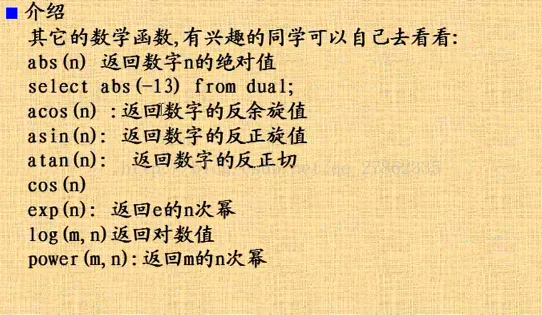 介绍
其它的数学函数,有兴趣的同学可以自己去看看:
abs(n) 返回数字n的绝对值
select abs(-13) from dual;
acos(n) :返回数字的反余旋值
asin(n): 返回数字的反正旋值
atan(n): 返回数字的反正切
cos(n)
exp(n): 返回e的n次幂
log(m,n)返回对数值
power(m,n):返回m的n次幂